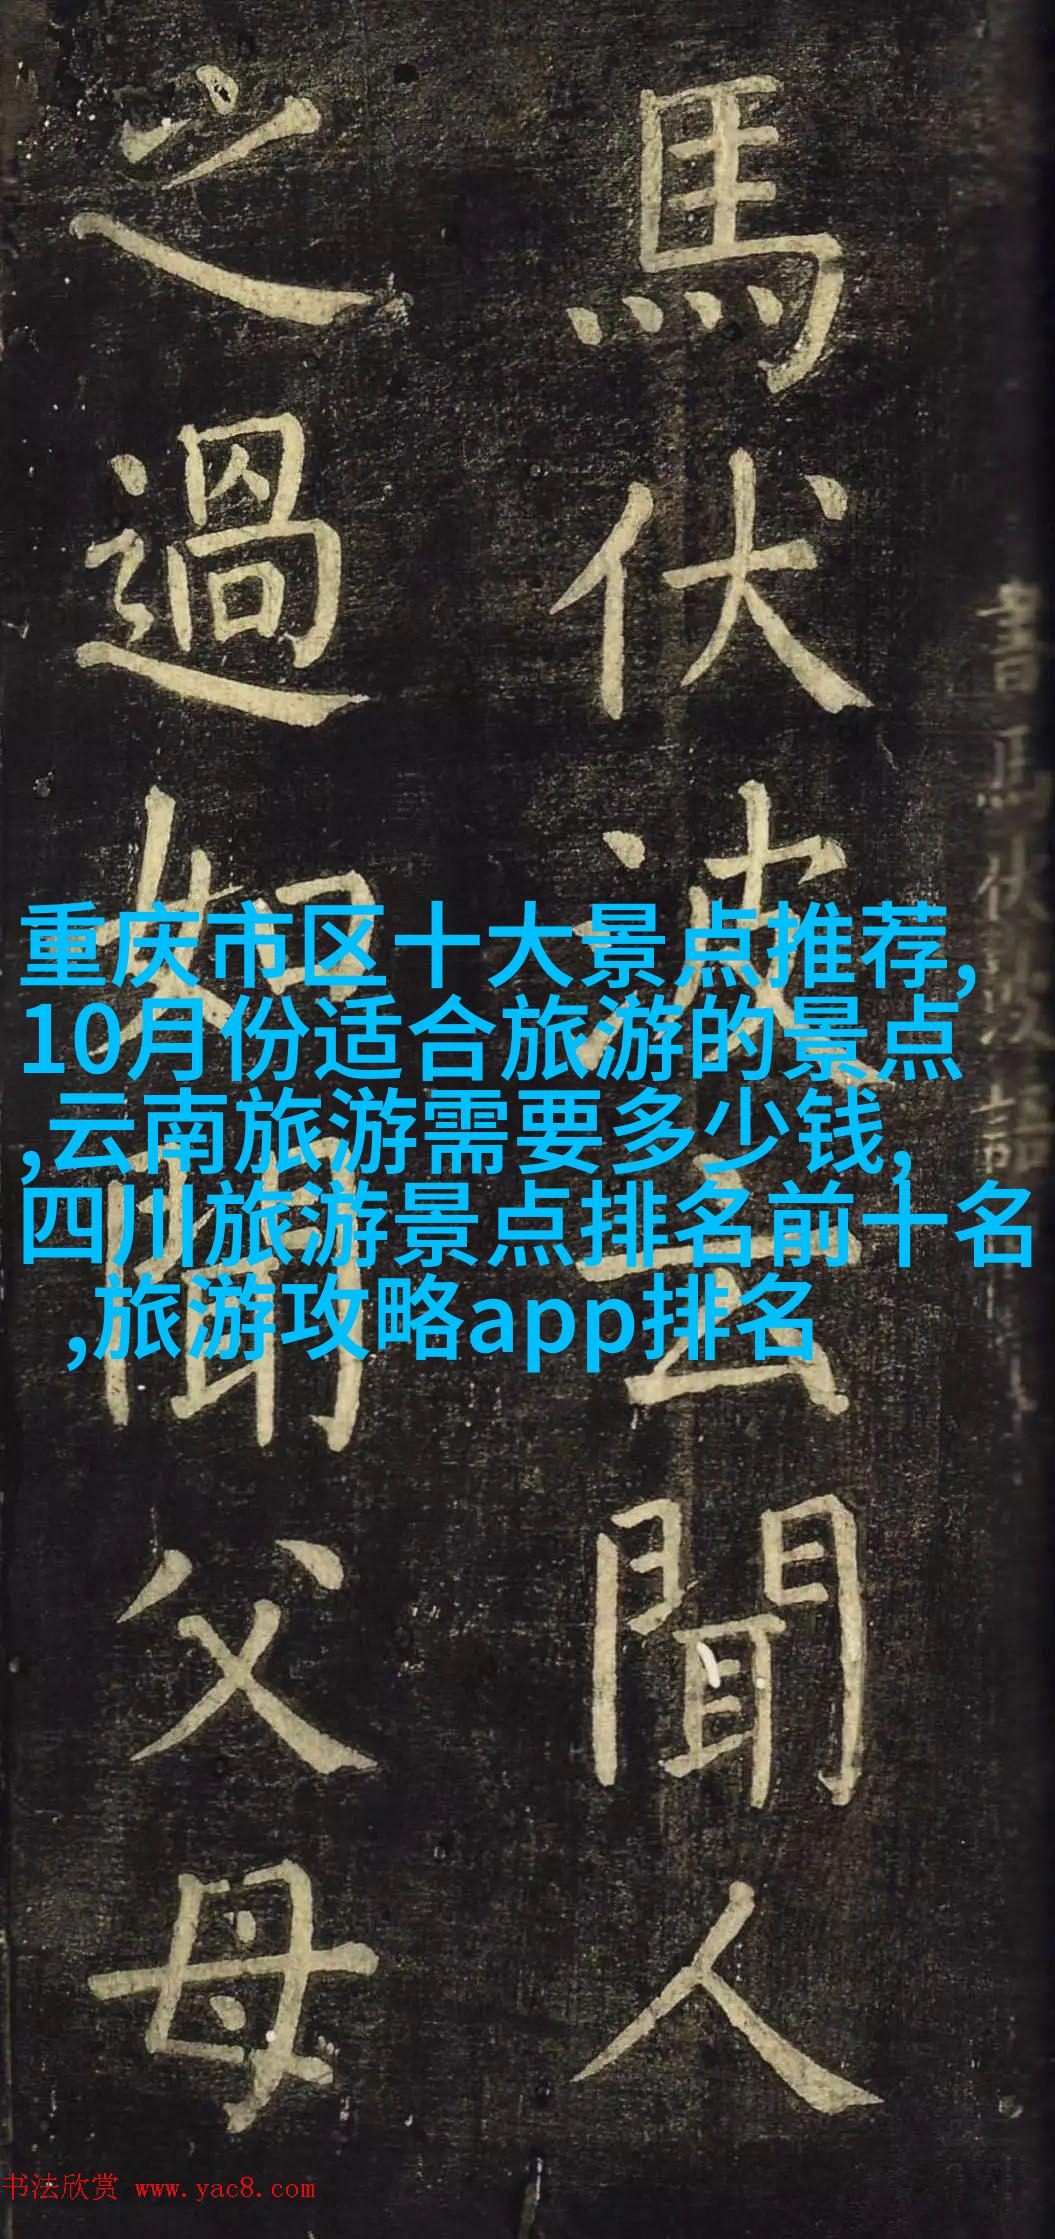 馬伏波云聞人
之過如聞父母
重庆市区十大景点推荐,
10月份适合旅游的景点
,云南旅游需要多少钱,
四川旅游景点排名前十名
,旅游攻略app排名
书法欣赏 www.yac8.com